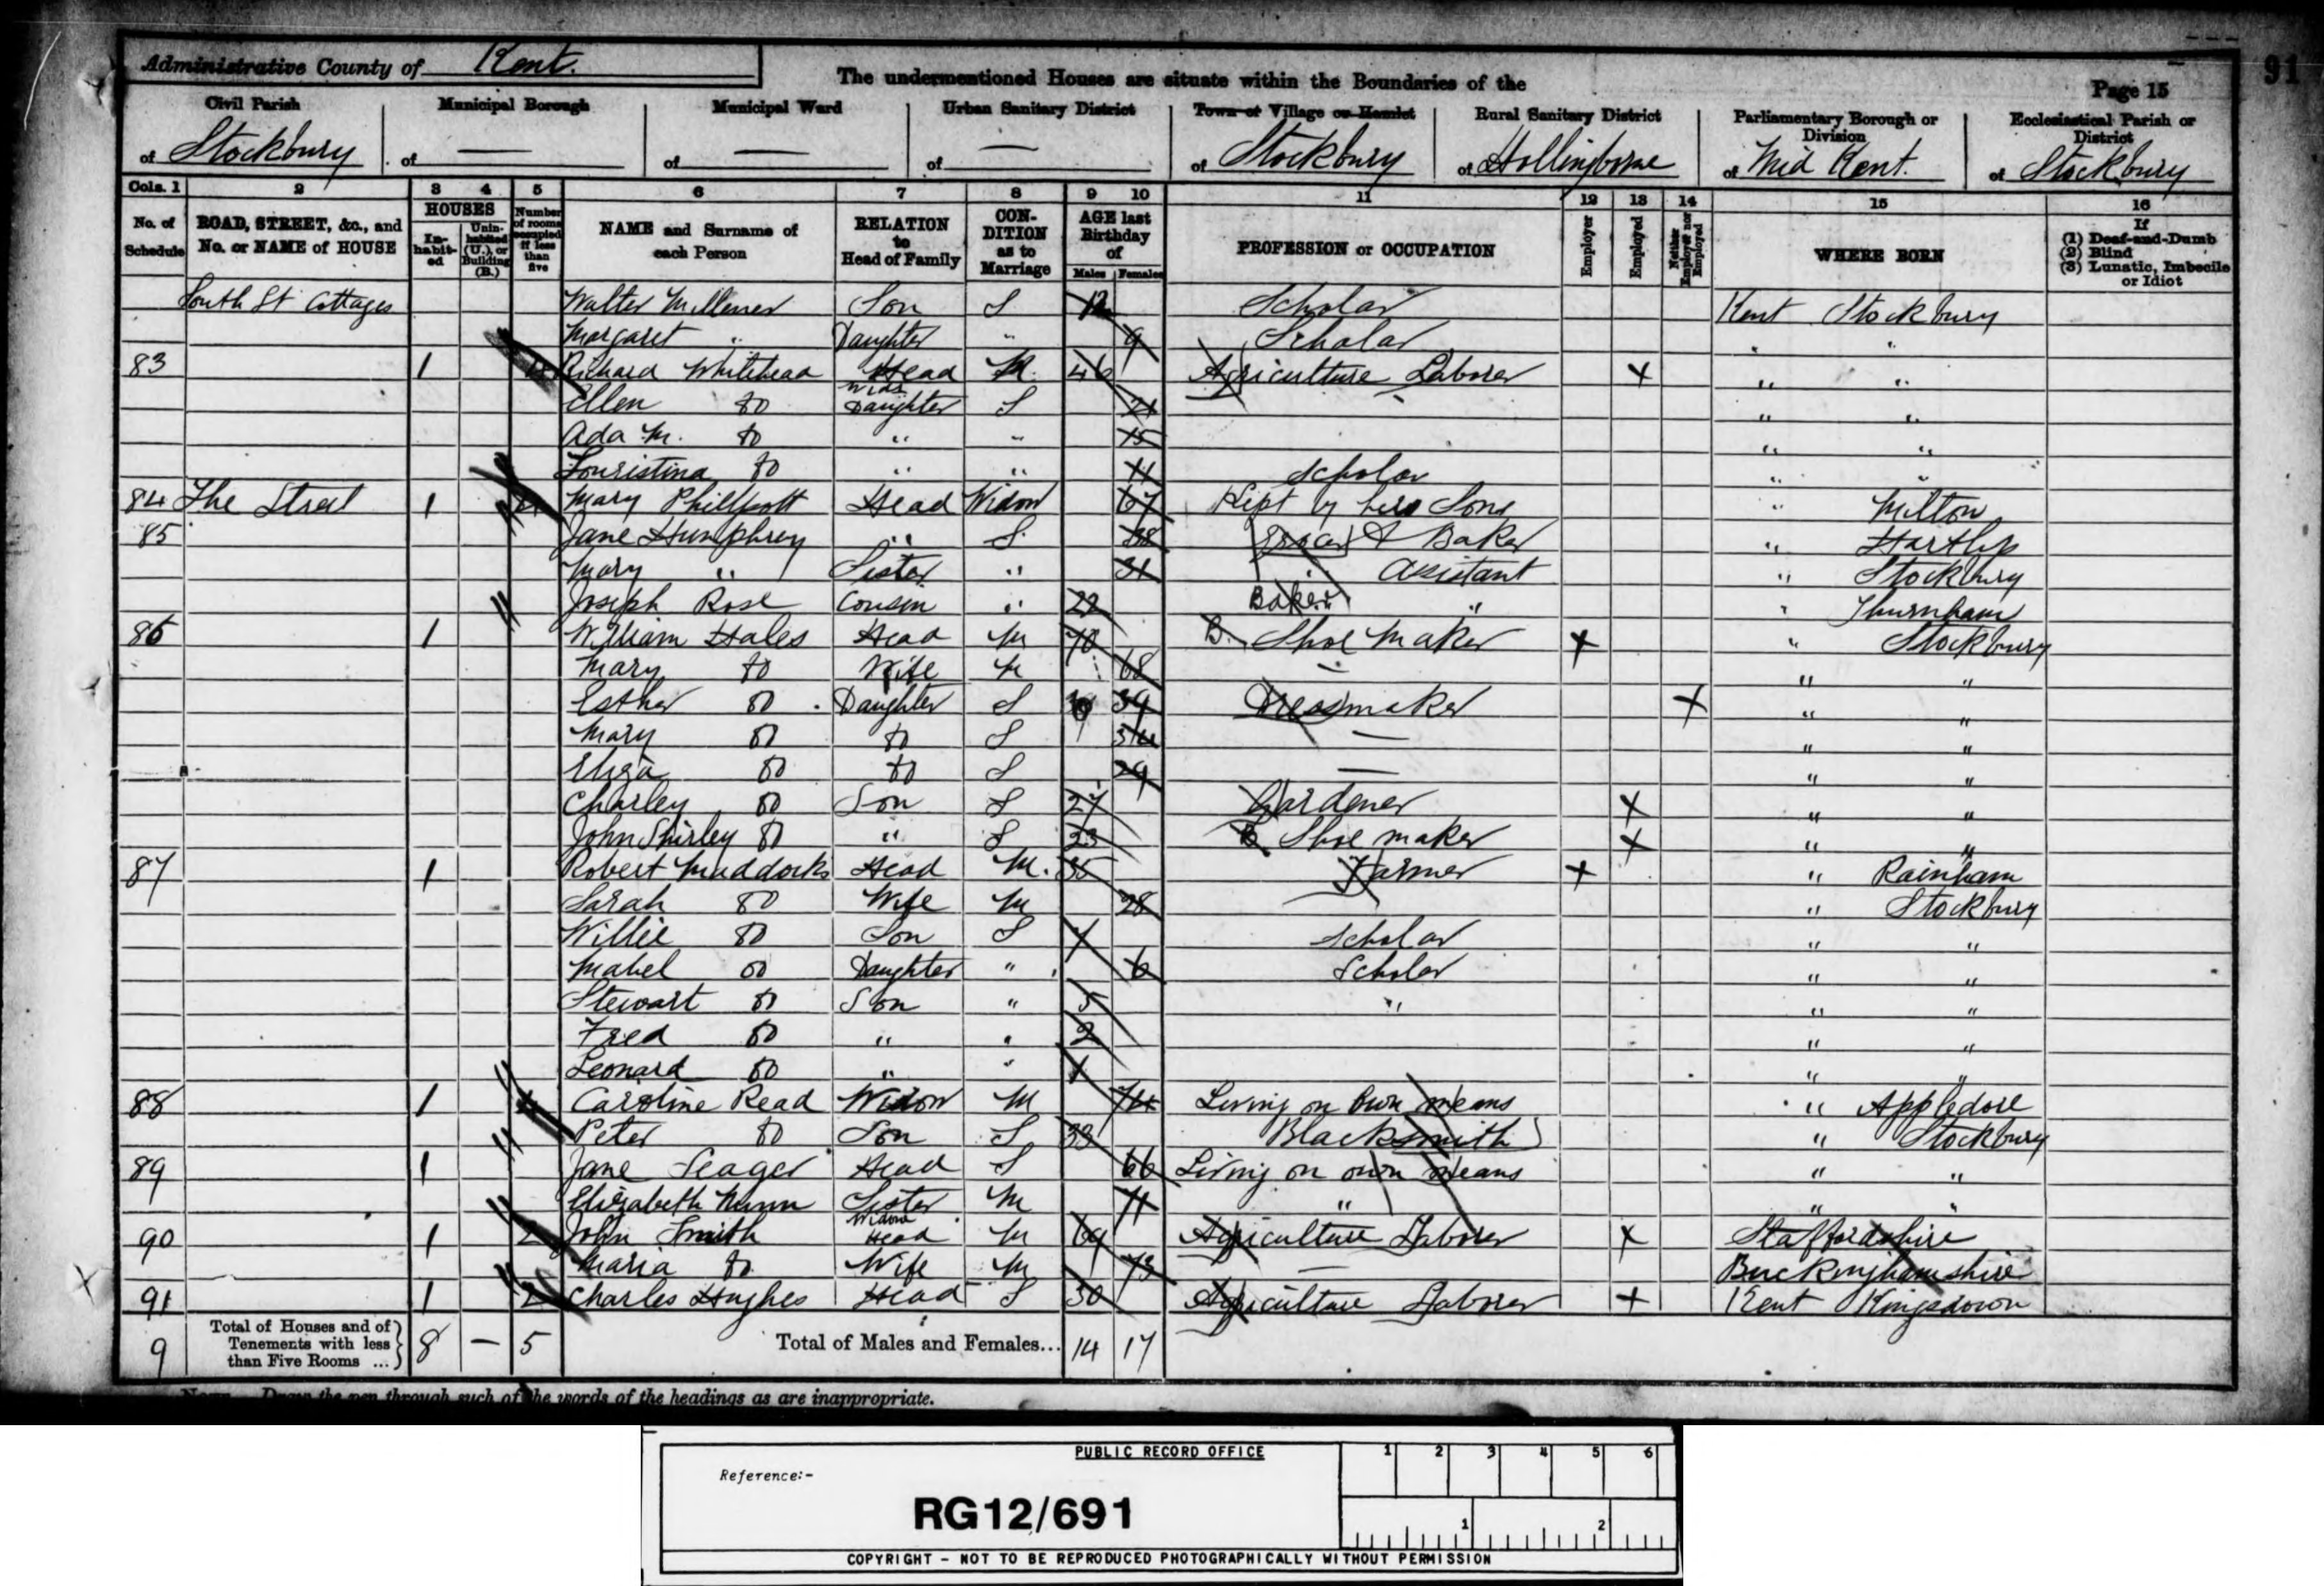 Administrative County of Kent.
The undermentioned Houses are situate within the Boundaries of the
Page 15
91
Civil Parish of Stockbury
Municipal Borough of —
Municipal Ward of —
Urban Sanitary District of —
Town or Village or Hamlet of Stockbury
Rural Sanitary District of Hollingborne
Parliamentary Borough or Division of Mid Kent.
Ecclesiastical Parish or District of Stockbury
Cols. 1 2 3 4 5 6 7 8 9 10 11 12 13 14 15 16
No. of Schedule
ROAD, STREET, &c., and No. or NAME of HOUSE
HOUSES
In-habit-ed
Unin-habited (U.), or Building (B.)
Number of rooms occupied if less than five
NAME and Surname of each Person
RELATION to Head of Family
CON-DITION as to Marriage
AGE last Birthday of
Males Females
PROFESSION or OCCUPATION
Employer
Employed
Neither Employer nor Employed
WHERE BORN
If
(1) Deaf-and-Dumb
(2) Blind
(3) Lunatic, Imbecile or Idiot
South St Cottages Walter Millener Son S 12 Scholar Kent Stockbury
Margaret " Daughter " 9 Scholar " "
83 1 Richard Whitehead Head M. 46 Agriculture Laborer X " "
Ellen do Daughter S 21 " "
Ada M. do " " 15 " "
do " " 11 Scholar " "
84 The Street 1 4 Mary Phillpott Head Widow 67 Kept by her Sons " Milton
85 Jane Humphrey " S. 38 Grocer & Baker " Hartlip
Mary " Sister " 31 Assistant " Stockbury
Joseph Rose Cousin " 22 Baker " " Thurnham
86 1 William Hales Head M 70 B. Shoe Maker X " Stockbury
Mary do Wife M 68 — " "
Esther do Daughter S 39 Dressmaker X " "
Mary do do S 34 — " "
Eliza do do S 29 — " "
Charley do Son S 27 Gardener X " "
John Shirley do " S 23 B Shoe maker X " "
87 1 Robert Maddocks Head M. 35 Farmer X " Rainham
Sarah do Wife M 28 " Stockbury
Willie do Son S 7 Scholar " "
Mabel do Daughter " 6 Scholar " "
Stewart do Son " 5 " " "
Fred do " " 2 " "
Leonard do " " 1 " "
88 1 4 Caroline Read Widow M 74 Living on Own means " Appledore
Peter do Son S 33 Blacksmith " Stockbury
89 1 Jane Seager Head S 66 Living on own means " "
Elizabeth Nunn Sister Widow M 71 " " "
90 1 2 John Smith Head M 69 Agriculture Laborer X Staffordshire
Maria do Wife M 73 — Buckinghamshire
91 1 2 Charles Hughes Head S 30 Agriculture Laborer X Kent Kingsdown
9 Total of Houses and of Tenements with less than Five Rooms ... 8 — 5 Total of Males and Females... 14 17
Note.—Draw the pen through such of the words of the headings as are inappropriate.
PUBLIC RECORD OFFICE
Reference:-
RG12/691
1 2 3 4 5 6
1 2
COPYRIGHT - NOT TO BE REPRODUCED PHOTOGRAPHICALLY WITHOUT PERMISSION